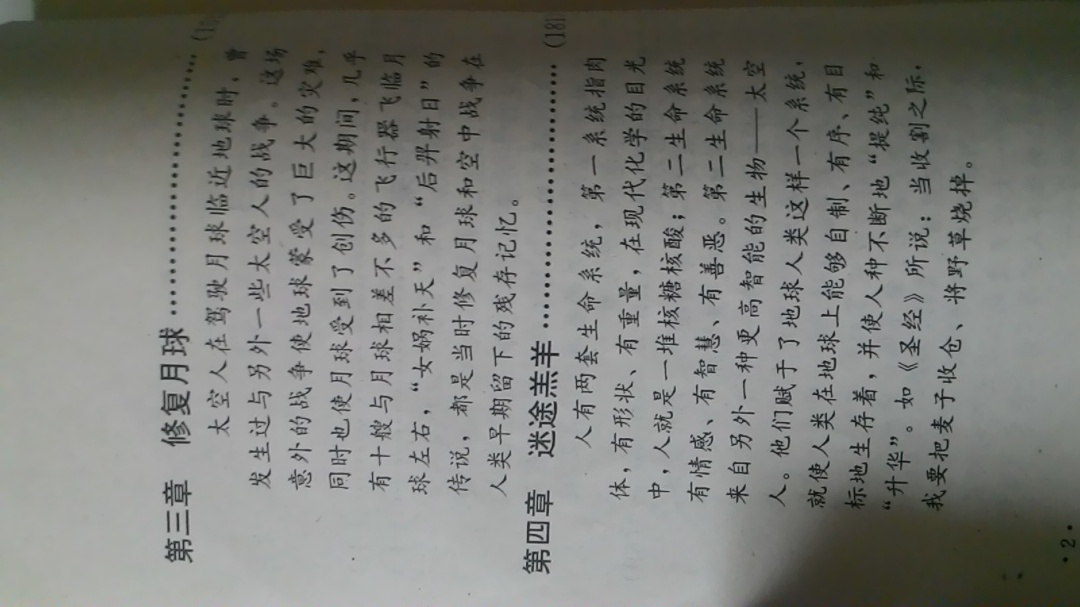 第三章 修复月球……………………(1
太空人在驾驶月球临近地球时，曾
发生过与另外一些太空人的战争。这场
意外的战争使地球蒙受了巨大的灾难，
同时也使月球受到了创伤。这期间，几乎
有十艘与月球相差不多的飞行器飞临月
球左右，“女娲补天”和“后羿射日”的
传说，都是当时修复月球和空中战争在
人类早期留下的残存记忆。
第四章 迷途羔羊……………………(181
人有两套生命系统，第一系统指肉
体，有形状、有重量，在现代化学的目光
中，人就是一堆核糖核酸；第二生命系统
有情感、有智慧、有善恶。第二生命系统
来自另外一种更高智能的生物——太空
人。他们赋于了地球人类这样一个系统，
就使人类在地球上能够自制、有序、有目
标地生存着，并使人种不断地“提纯”和
“升华”。如《圣经》所说：当收割之际，
我要把麦子收仓、将野草烧掉。
·2·